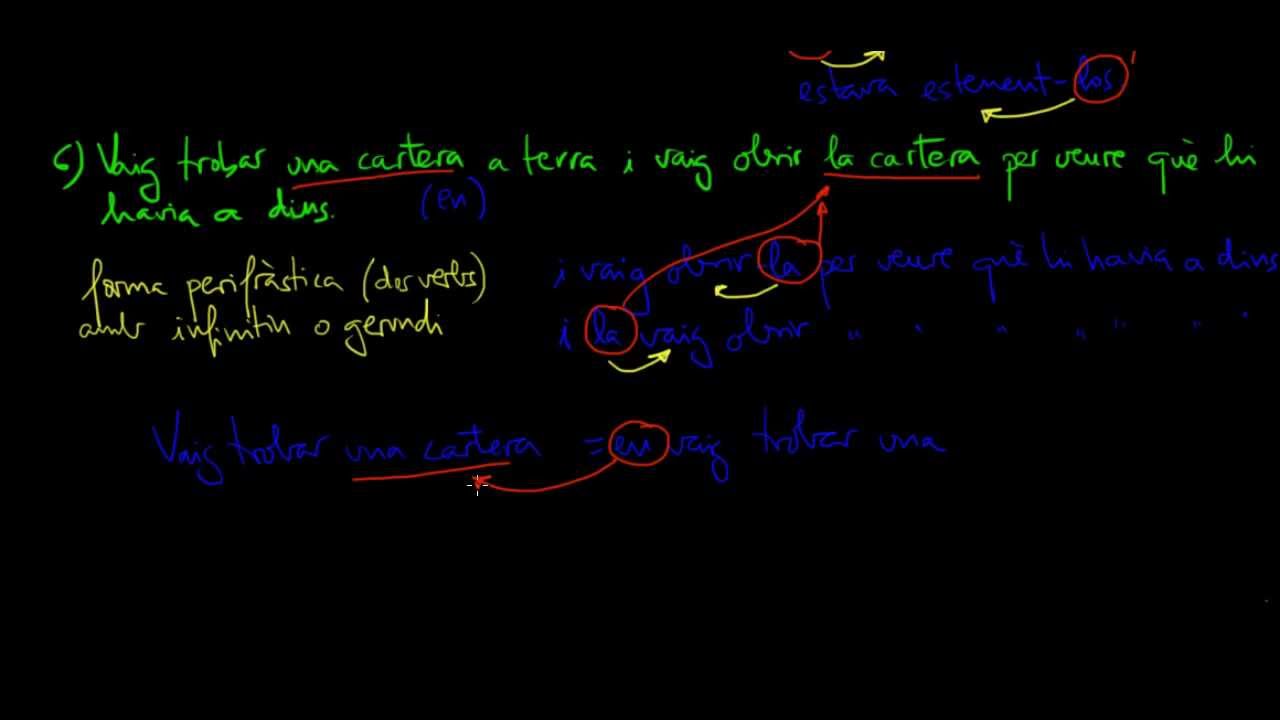 estava estenent-los
6) Vaig trobar una cartera a terra i vaig obrir la cartera per veure què hi
havia a dins. (en)
forma perifràstica (dos verbs)
amb infinitiu o gerundi
i vaig obrir-la per veure què hi havia a dins
i la vaig obrir " " " " " " "
Vaig trobar una cartera = en vaig trobar una